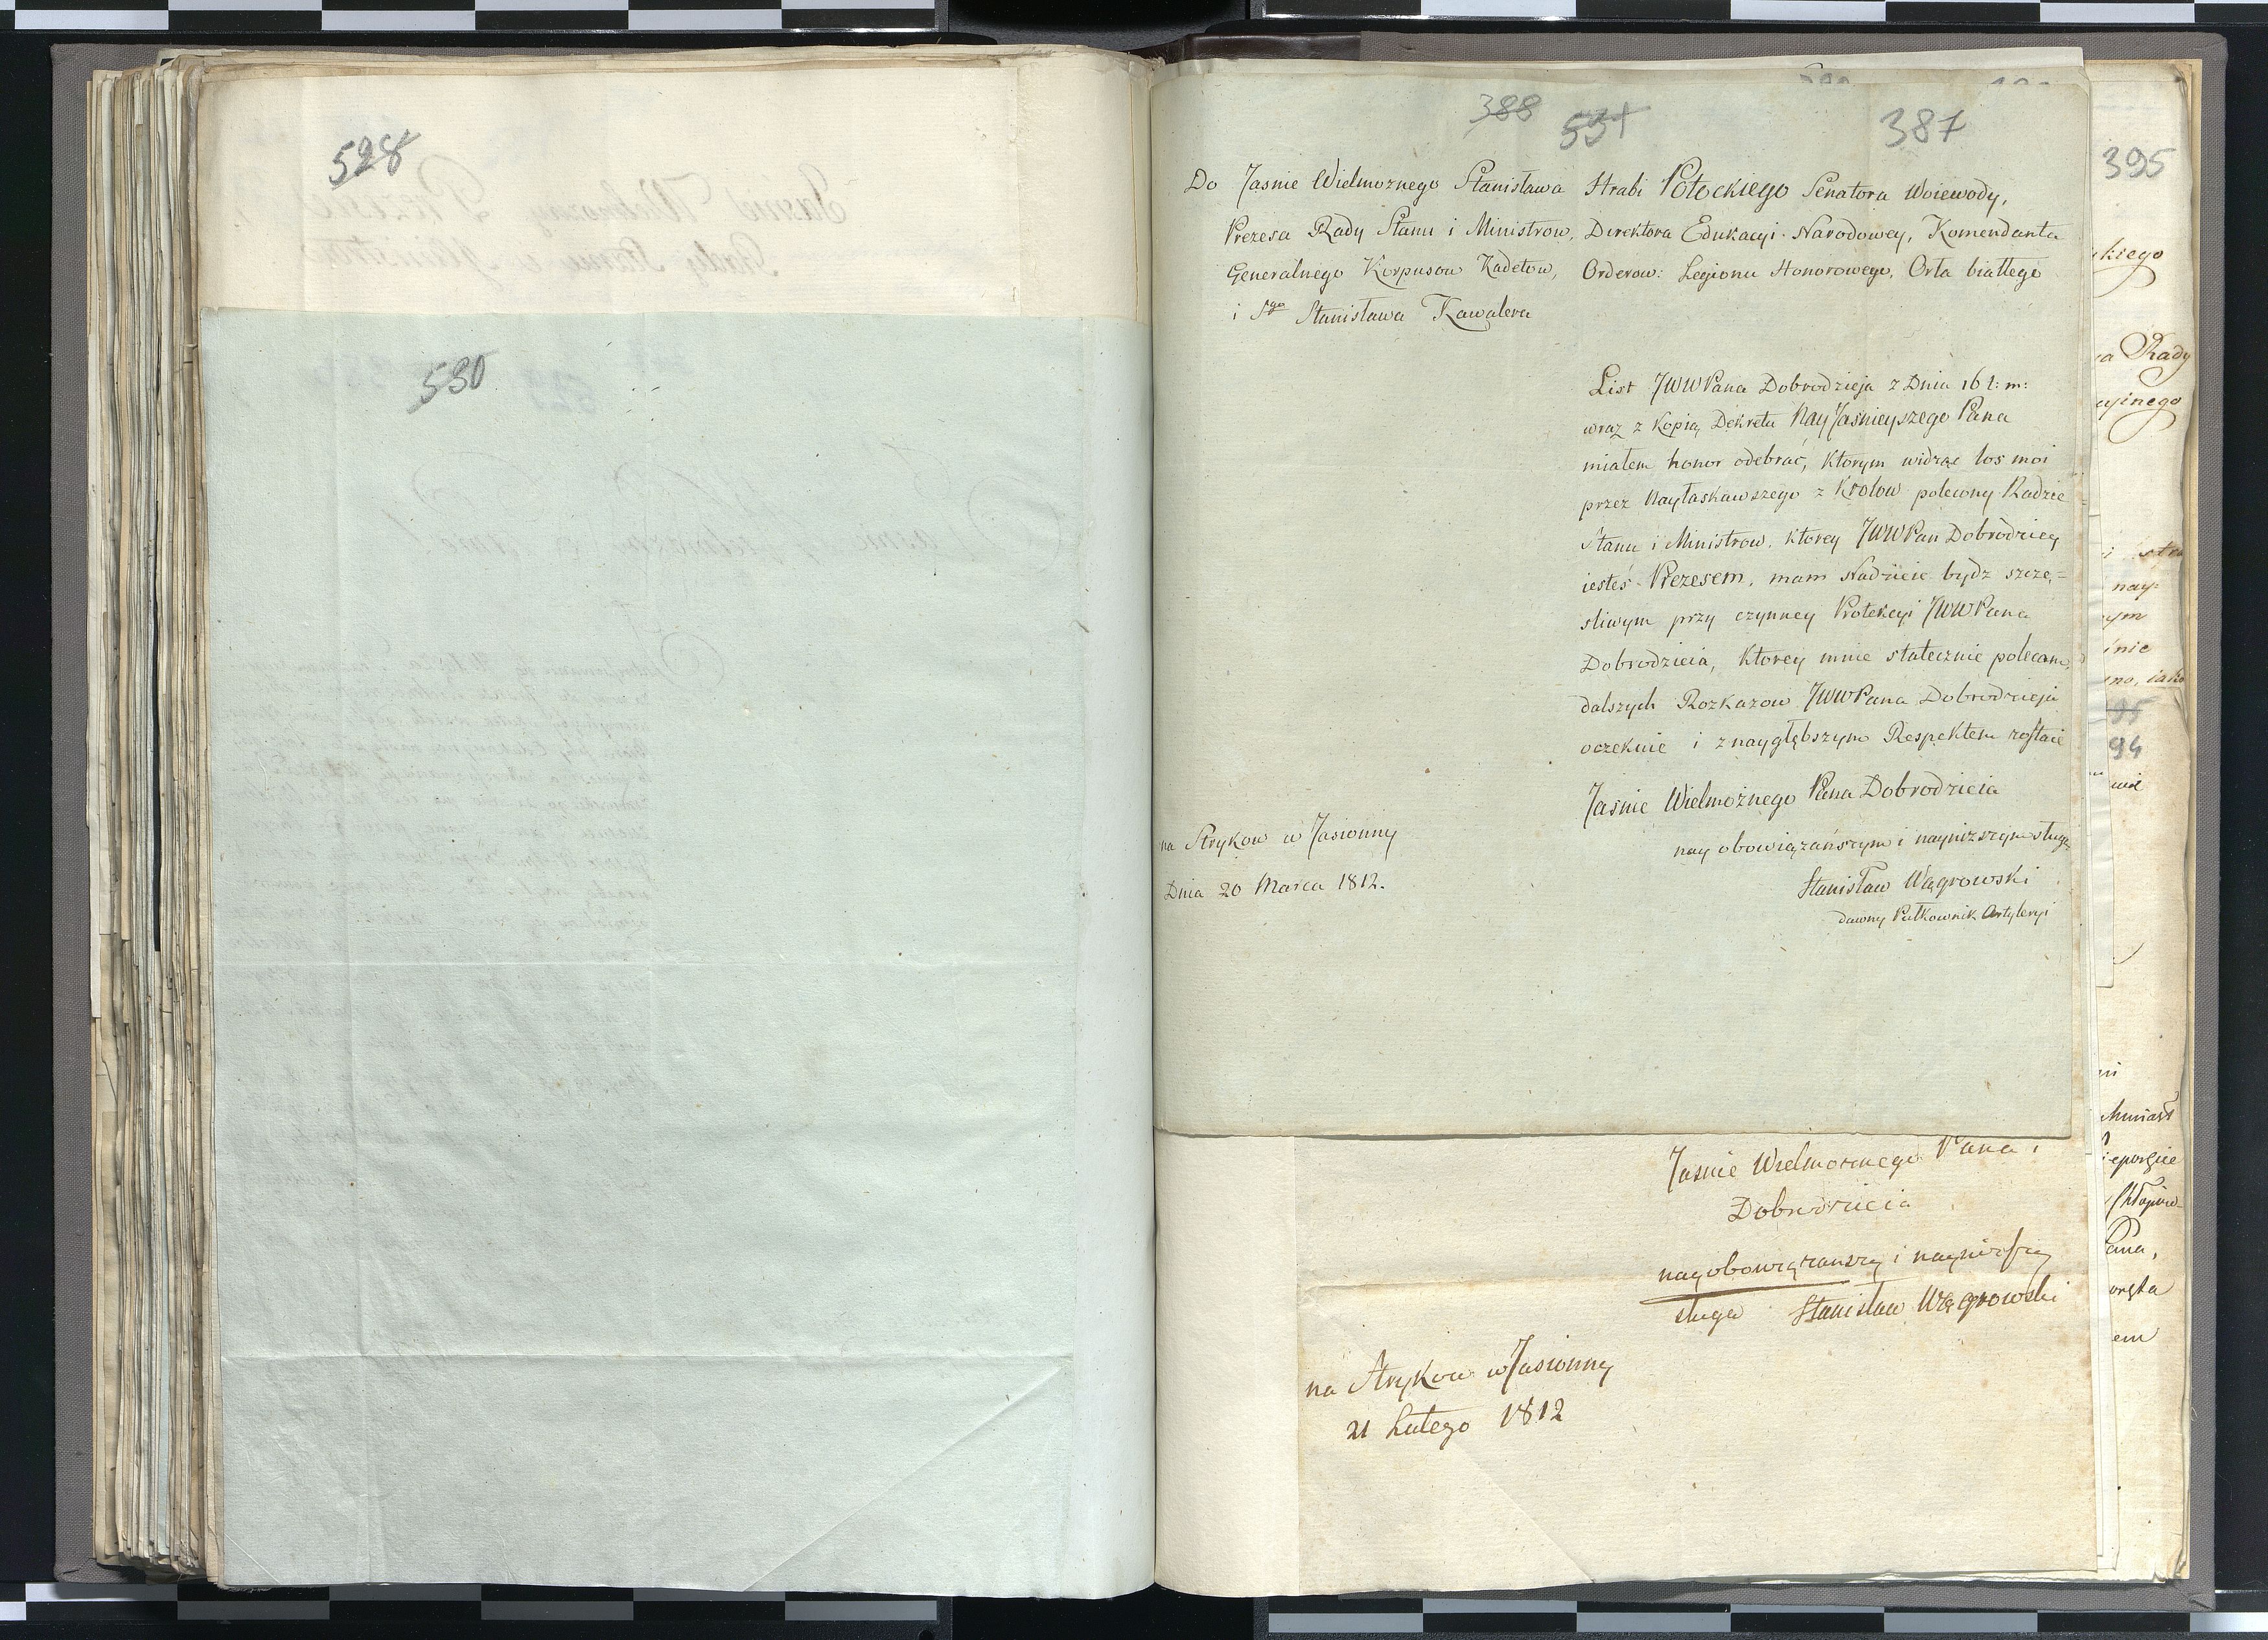 528
530
388 531 387
Do Jasnie Wielmoznego Stanisława Hrabi Potockiego Senatora Woiewody,
Prezesa Rady Stanu i Ministrow, Direktora Edukacyi Narodowey, Komendanta
Generalnego Korpusow Kadetow, Orderow: Legionu Honorowego, Orła białłego
i Sgo Stanisława Kawalera
List JWWPana Dobrodzieja z Dnia 16 t: m:
wraz z Kopią Dekretu NayJaśnieyszego Pana
miałem honor odebrać, Ktorym widząc los moi
przez Nayłaskawszego z Krolow polecony Radzie
Stanu i Ministrow, Ktorey JWWPan Dobrodziey
iesteś Prezesem, mam Nadzieie bydz szczę=
sliwym przy czynney Protekcyi JWWPana
Dobrodzieia, Ktorey mnie statecznie polecam,
dalszych Rozkazow JWWPana Dobrodzieja
oczekuie i z naygłębszym Respektem zostaie
Jaśnie Wielmożnego Pana Dobrodzieia
nay obowiązańszym i nayniższym sługą
Stanisław Wągrowski
dawny Pułkownik Artyleryi
na Strykow w Jasionny
Dnia 20 Marca 1812.
Jasnie Wielmoznego Pana i
Dobrodzieia
nayobowiązanszy i nayniższy
sługa Stanisław Wągrowski
na Strykow w Jasionny
21 Lutego 1812
395
kiego
Rady
nay=
nie
94
Pana,
em